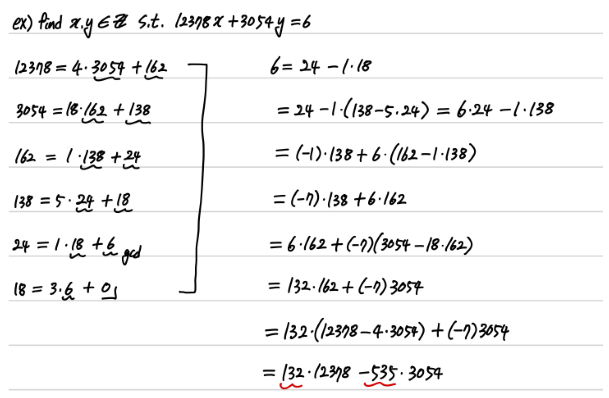 ex) find x,y ∈ ℤ s.t. 12378x + 3054y = 6
12378 = 4·3054 + 162
3054 = 18·162 + 138
162 = 1·138 + 24
138 = 5·24 + 18
24 = 1·18 + 6 gcd
18 = 3·6 + 0
6 = 24 - 1·18
= 24 - 1·(138 - 5·24) = 6·24 - 1·138
= (-1)·138 + 6·(162 - 1·138)
= (-7)·138 + 6·162
= 6·162 + (-7)(3054 - 18·162)
= 132·162 + (-7)3054
= 132·(12378 - 4·3054) + (-7)3054
= 132·12378 - 535·3054